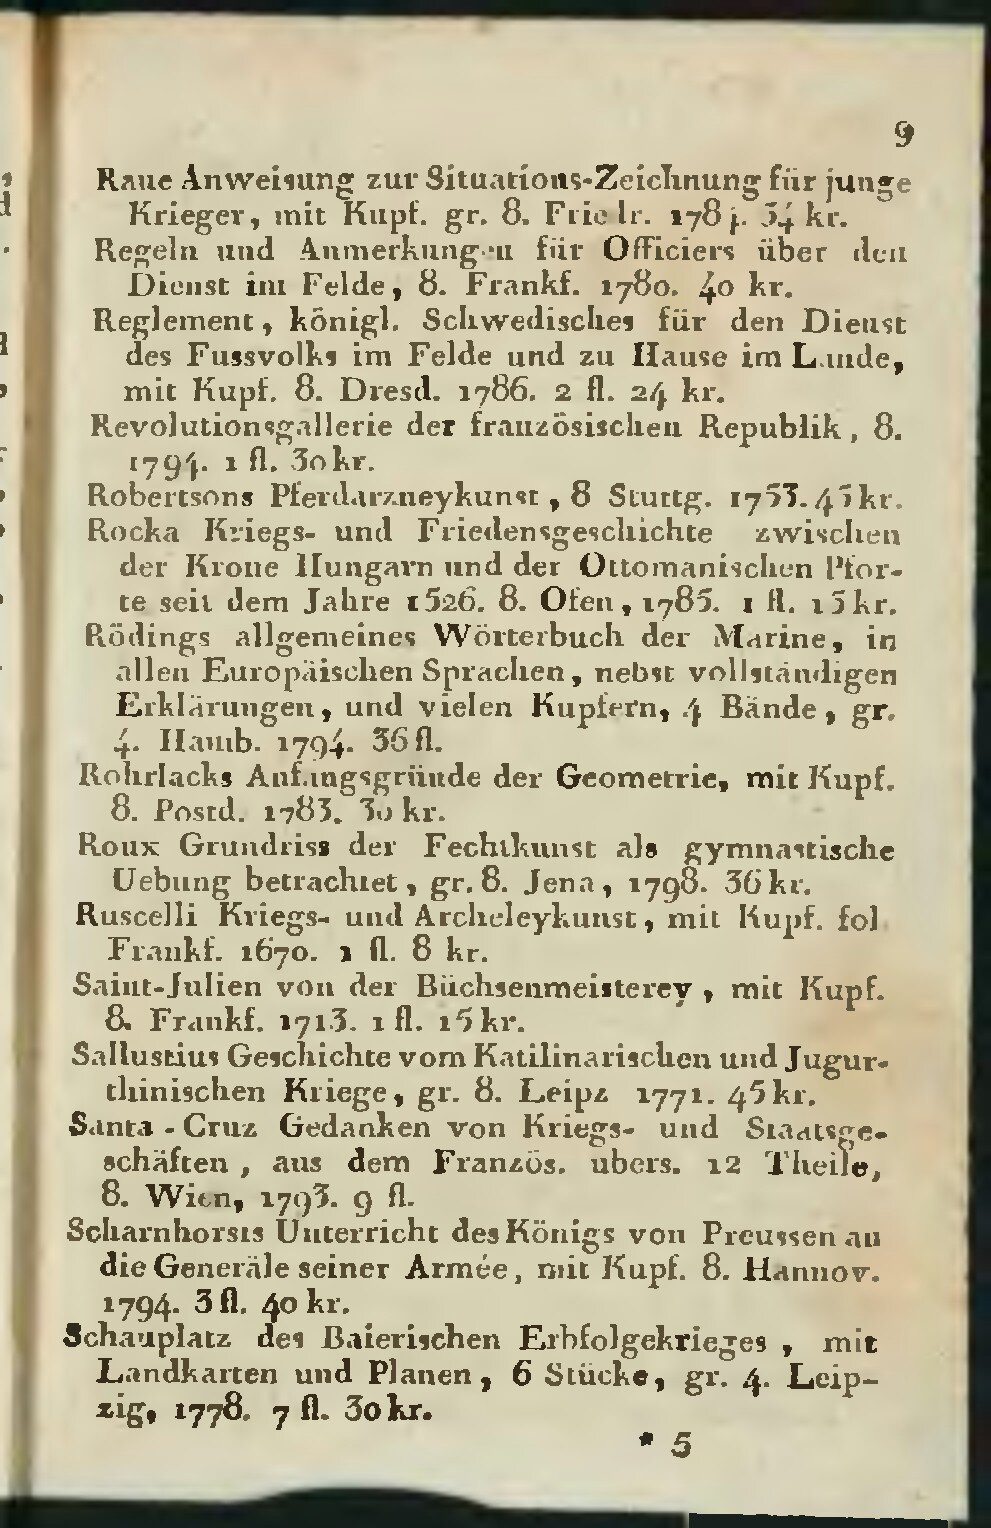 9
Raue Anweisung zur Situations-Zeichnung für junge
Krieger, mit Kupf. gr. 8. Friedr. 54 kr.
Regeln und Anmerkungen für Officiers über den
Dienst im Felde, 8. Frankf. 1780. 40 kr.
Reglement, königl. Schwedisches für den Dienst
des Fussvolks im Felde und zu Hause im Lande,
mit Kupf. 8. Dresd. 1786. 2 fl. 24 kr.
Revolutionsgallerie der französischen Republik, 8.
1794. 1 fl. 30 kr.
Robertsons Pferdarzneykunst, 8 Stuttg. 1753. 45 kr.
Rocka Kriegs- und Friedensgeschichte zwischen
der Krone Hungarn und der Ottomanischen Pfor-
te seit dem Jahre 1526. 8. Ofen, 1785. 1 fl. 15 kr.
Rödings allgemeines Wörterbuch der Marine, in
allen Europäischen Sprachen, nebst vollständigen
Erklärungen, und vielen Kupfern, 4 Bände, gr.
4. Hamb. 1794. 36 fl.
Rohrlacks Anfangsgründe der Geometrie, mit Kupf.
8. Postd. 1783. 30 kr.
Roux Grundriss der Fechtkunst als gymnastische
Uebung betrachtet, gr. 8. Jena, 1798. 36 kr.
Ruscelli Kriegs- und Archeleykunst, mit Kupf. fol.
Frankf. 1670. 1 fl. 8 kr.
Saint-Julien von der Büchsenmeisterey, mit Kupf.
8. Frankf. 1713. 1 fl. 15 kr.
Sallustius Geschichte vom Katilinarischen und Jugur-
thinischen Kriege, gr. 8. Leipz 1771. 45 kr.
Santa-Cruz Gedanken von Kriegs- und Staatsge-
schäften, aus dem Französ. übers. 12 Theile,
8. Wien, 1793. 9 fl.
Scharnhorsts Unterricht des Königs von Preussen an
die Generäle seiner Armée, mit Kupf. 8. Hannov.
1794. 3 fl. 40 kr.
Schauplatz des Baierischen Erbfolgekrieges, mit
Landkarten und Planen, 6 Stücke, gr. 4. Leip-
zig, 1778. 7 fl. 30 kr.
* 5